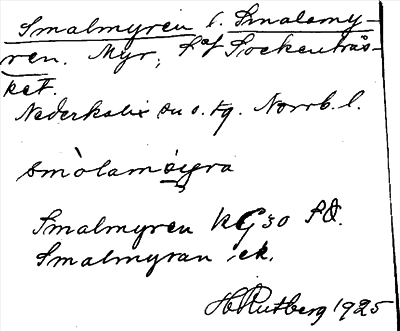 Smalmyren l. Smalamy-
ren. Myr, S af Sockenträs-
ket.
Nederkalix sn o. tg. Norrb. l.
smòlamöyra
Smalmyren KG 30 SO.
Smalmyran, ek.
H Rutberg 1925